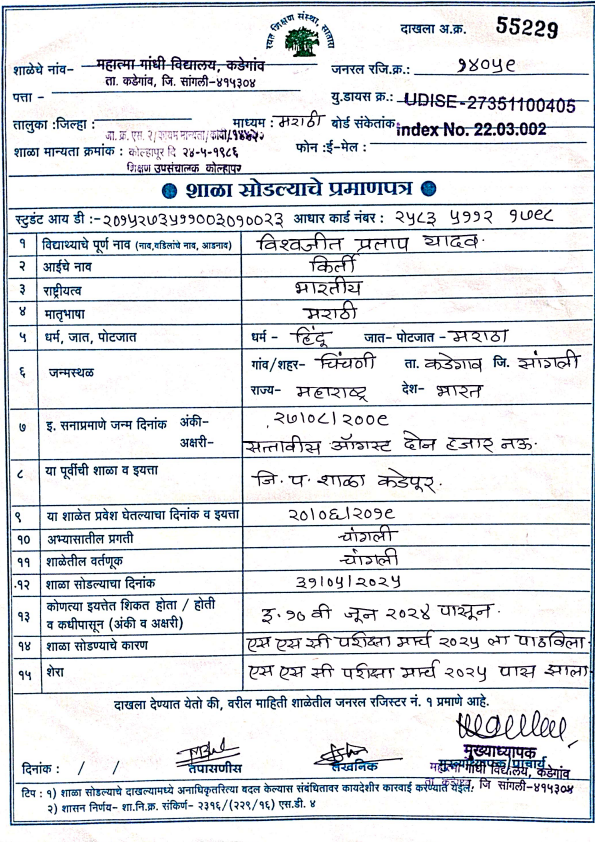 रयत शिक्षण संस्था, सातारा
दाखला अ.क्र. 55229
शाळेचे नांव- महात्मा गांधी विद्यालय, कडेगांव
ता. कडेगांव, जि. सांगली-४१५३०४
जनरल रजि.क्र.: १४०५९
पत्ता -
यु.डायस क्र.: UDISE-27351100405
तालुका :जिल्हा : माध्यम : मराठी बोर्ड संकेतांक index No. 22.03.002
जा. क्र. एस. २/कायम मान्यता/
शाळा मान्यता क्रमांक : कोल्हापुर दि २४-५-१९८६ फोन :ई-मेल :
शिक्षण उपसंचालक कोल्हापुर
शाळा सोडल्याचे प्रमाणपत्र
स्टुडंट आय डी :-२०१५२७३५११००३०१००२३ आधार कार्ड नंबर : २५८३ ५११२ १७९८
१ विद्यार्थ्याचे पूर्ण नाव (नाव,वडिलांचे नाव, आडनाव) विश्वजीत प्रताप यादव.
२ आईचे नाव किर्ती
३ राष्ट्रीयत्व भारतीय
४ मातृभाषा मराठी
५ धर्म, जात, पोटजात धर्म - हिंदू जात- पोटजात - मराठा
६ जन्मस्थळ गांव/शहर- चिंचणी ता. कडेगाव जि. सांगली
राज्य- महाराष्ट्र देश- भारत
७ इ. सनाप्रमाणे जन्म दिनांक अंकी- २७/०८/२००९
अक्षरी- सत्तावीस ऑगस्ट दोन हजार नऊ.
८ या पूर्वीची शाळा व इयत्ता जि. प. शाळा कडेपूर.
९ या शाळेत प्रवेश घेतल्याचा दिनांक व इयत्ता २०/०६/२०१९
१० अभ्यासातील प्रगती चांगली
११ शाळेतील वर्तणूक चांगली
१२ शाळा सोडल्याचा दिनांक ३१/०५/२०२५
१३ कोणत्या इयत्तेत शिकत होता / होती
व कधीपासून (अंकी व अक्षरी) इ. १० वी जून २०२४ पासून.
१४ शाळा सोडण्याचे कारण एस एस सी परीक्षा मार्च २०२५ ला पाठविला.
१५ शेरा एस एस सी परीक्षा मार्च २०२५ पास झाला.
दाखला देण्यात येतो की, वरील माहिती शाळेतील जनरल रजिस्टर नं. १ प्रमाणे आहे.
मुख्याध्यापक
दिनांक : / / तपासणीस लेखनिक मुख्याध्यापक/प्राचार्य
महात्मा गांधी विद्यालय, कडेगांव
ता. कडेगांव, जि सांगली-४१५३०४
टिप : १) शाळा सोडल्याचे दाखल्यामध्ये अनाधिकृतरित्या बदल केल्यास संबंधितावर कायदेशीर कारवाई करण्यात येईल.
२) शासन निर्णय- शा.नि.क्र. संकिर्ण- २३१६/(२२९/१६) एस.डी. ४